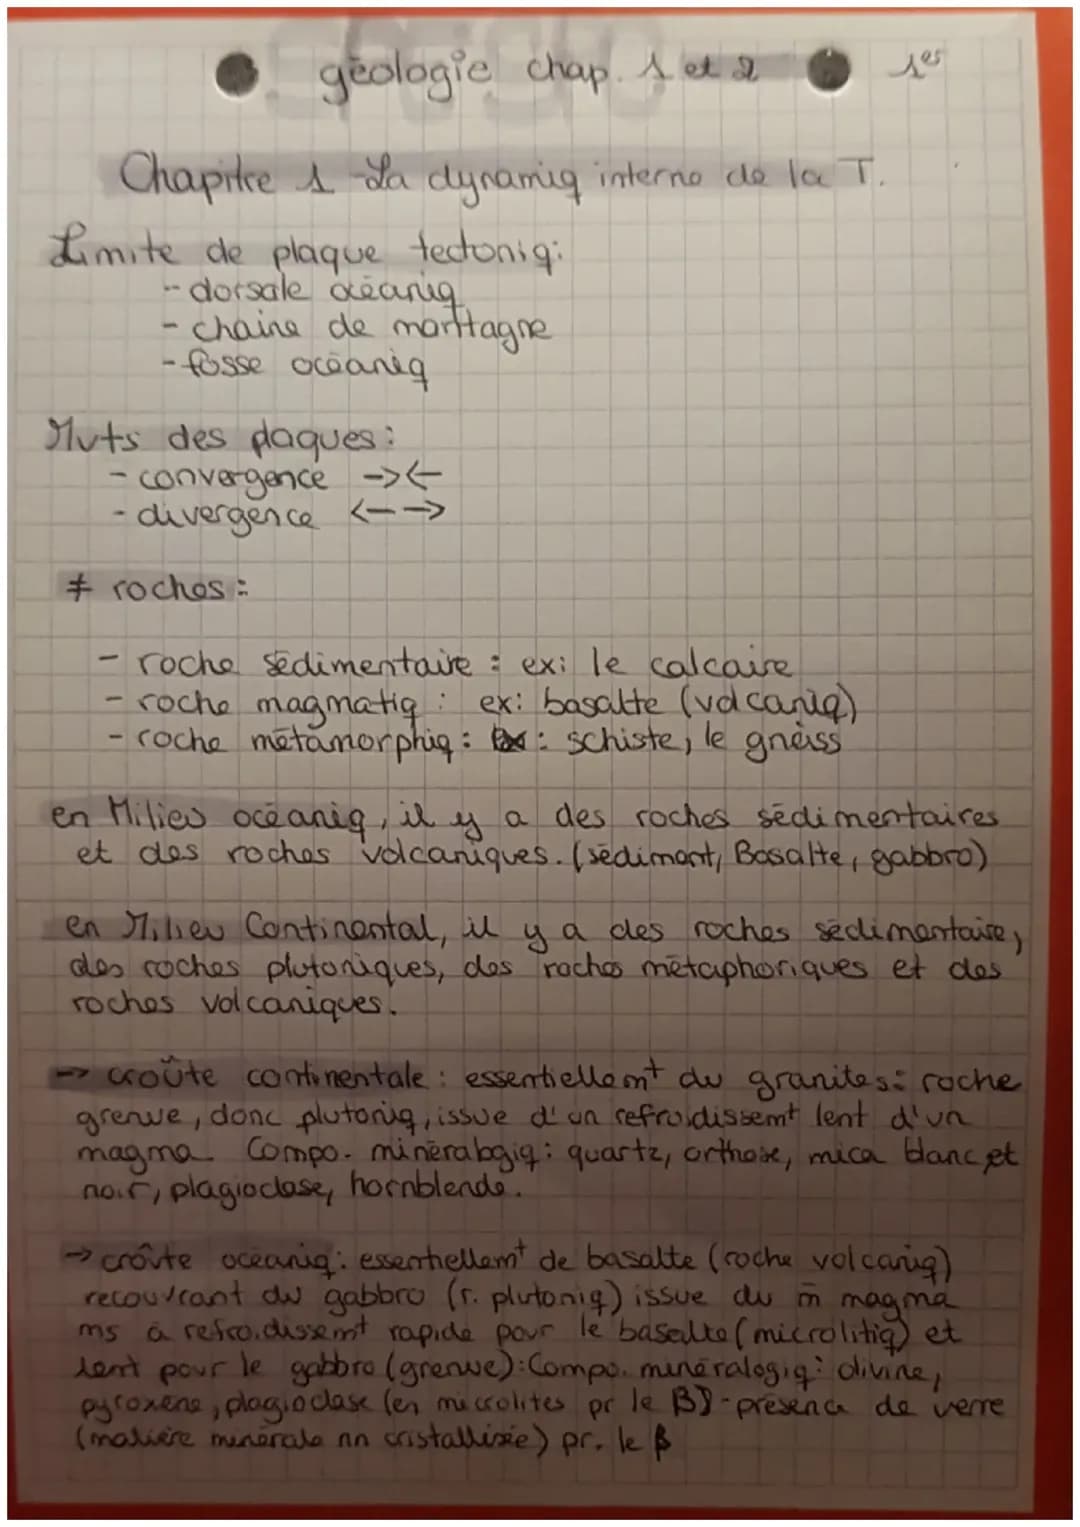 géologie chap. 1 et 2 1es
Chapitre 1 - La dynamiq interne de la T.
Limite de plaque tectoniq:
- dorsale océaniq
- chaine de montagne
- fosse océaniq
Mvts des plaques:
- convergence →←
- divergence ←→
≠ roches :
- roche sédimentaire : ex: le calcaire
- roche magmatiq : ex: basalte (volcaniq)
- roche métamorphiq : ex : schiste, le gneiss
en Milieu océaniq, il y a des roches sédimentaires
et des roches volcaniques. (sédiment, Basalte, gabbro)
en Milieu Continental, il y a des roches sédimentaire,
des roches plutoniques, des roches métaphoriques et des
roches volcaniques.
→ croûte continentale : essentiellemt du granites: roche
grenue, donc plutoniq, issue d'un refroidissemt lent d'un
magma. Compo. minéralogiq : quartz, orthose, mica blanc et
noir, plagioclase, hornblende.
→ croûte océaniq: essentiellemt de basalte (roche volcaniq)
recouvrant du gabbro (r. plutoniq) issue du m̄ magma
ms à refroidissemt rapide pour le basalte (microlitiq) et
lent pour le gabbro (grenue): Compo. minéralogiq: olivine,
pyroxène, plagioclase (en microlites pr le β) - présence de verre
(matière minérale nn cristallisée) pr. le β